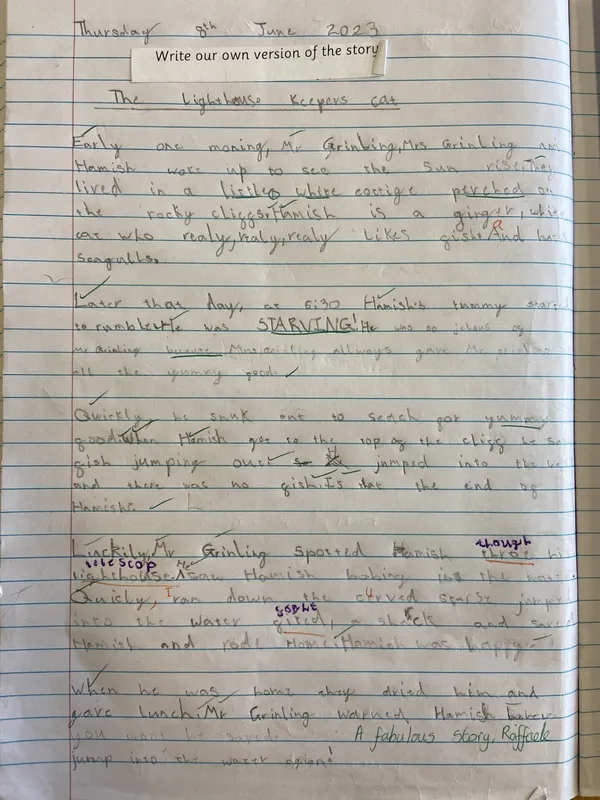 Thursday 8th June 2023
Write our own version of the story
The Lighthouse Keepers cat
Early one moning, Mr Grinling, Mrs Grinling and
Hamish woke up to see the Sun rise. They
lived in a little white cottige perched on
the rocky cliggs. Hamish is a ginger, white
cat who realy, realy, realy likes gish. And hates
seagulls.
Later that day, at 6:30 Hamish's tummy started
to rumble. He was STARVING! He was so jelous og
Mr Grinling because Mrs Grinling allways gave Mr Grinling
all the yummy good.
Quickly he snuk out to seach gor yummy
good. When Hamish got to the top og the cligg he
gish jumping out. jumped into the
and there was no gish. Is that the end og
Hamish.
though
Luckily, Mr Grinling spotted Hamish his
telescop He
lighthouse. saw Hamish bobing in the
Quicly, I ran down the curved stars. jumped
gorht
into the water a shack and saved
Hamish and rode Home. Hamish was happy.
When he was home they dried him and
gave lunch. Mr Grinling warned Hamish
you wont be saved.
A fabulous story, Raffaele
jump into the water agian!